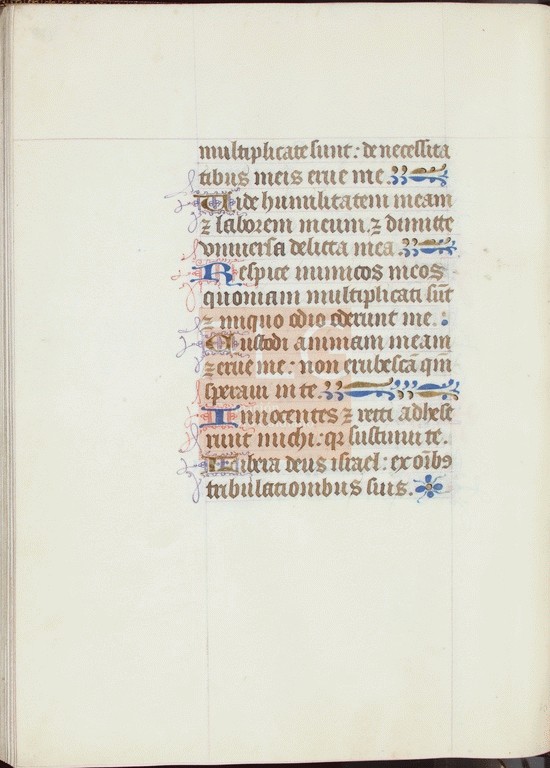 multiplicate sunt: de necessita
tibus meis erue me.
Uide humilitatem meam
⁊ laborem meum. ⁊ dimitte
vniuersa delicta mea.
Respice inimicos meos
quoniam multiplicati sūt
⁊ iniquo odio oderunt me.
Custodi animam meam
⁊ erue me: non erubescā qm̄
speraui in te.
Innocentes ⁊ recti adhese
runt michi: qr sustinui te.
Libera deus israel: ex oībꝫ
tribulationibus suis.